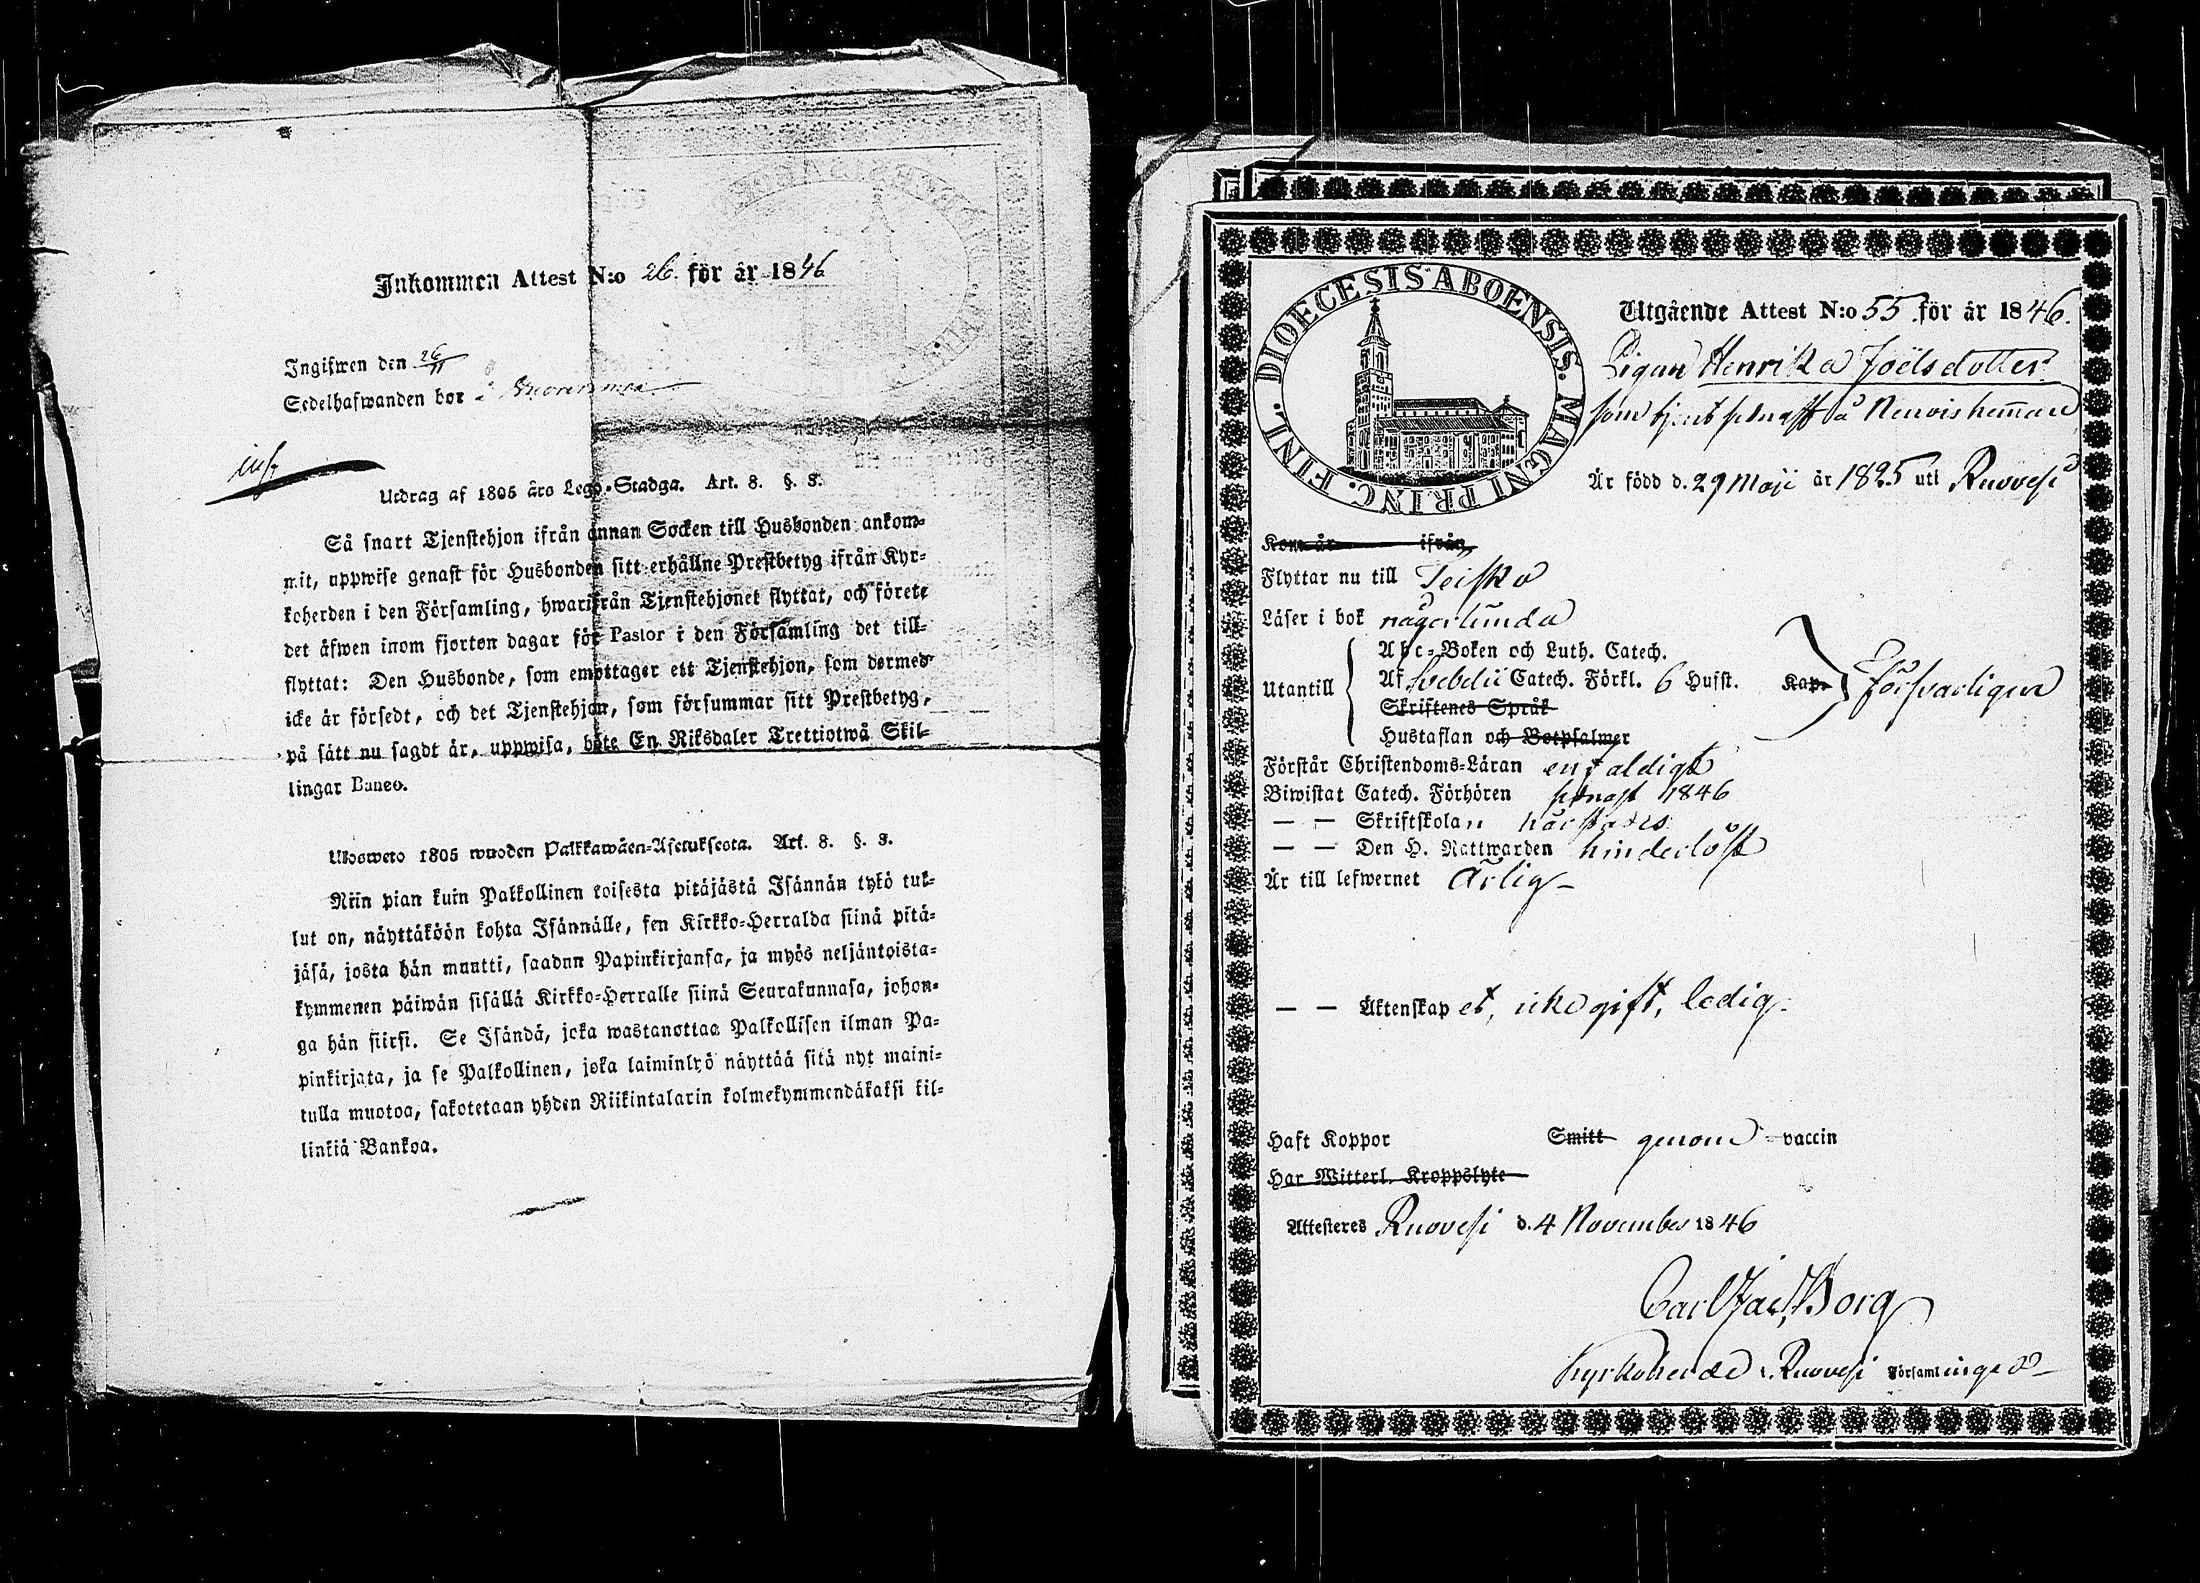 Inkommen Attest N:o 26. för år 1846
Ingifwen den 26/11
Sedelhafwanden bor i
inf
Utdrag af 1805 års Lego-Stadga. Art. 8. §. 8.
Så snart Tjenstehjon ifrån annan Socken till Husbonden ankom-
mit, uppwise genast för Husbonden sitt erhållne Prestbetyg ifrån Kyr-
koherden i den Församling, hwarifrån Tjenstehjonet flyttat, och förete
det äfwen inom fjorton dagar för Pastor i den Församling det till-
flyttat: Den Husbonde, som emottager ett Tjenstehjon, som dermed
icke är försedt, och det Tjenstehjon, som försummar sitt Prestbetyg,
på sätt nu sagdt är, uppwisa, böte En Riksdaler Trettiotwå Skil-
lingar Banco.
Ulosweto 1805 wuoden Palkkawäen-Asetuksesta. Art. 8. §. 8.
Niin pian kuin Palkollinen toisesta pitäjästä Isännän tykö tul-
lut on, näyttäköön kohta Isännälle, sen Kirkko-Herralda siinä pitä-
jäsä, josta hän muutti, saadun Papinkirjansa, ja myös neljäntoista-
kymmenen päiwän sisällä Kirkko-Herralle siinä Seurakunnasa, johon-
ga hän siirsi. Se Isändä, joka wastanottaa Palkollisen ilman Pa-
pinkirjata, ja se Palkollinen, joka laiminlyö näyttää sitä nyt maini-
tulla muotoa, sakotetaan yhden Riikintalarin kolmekymmendäkaksi kil-
linkiä Bankoa.
DIOECESIS ABOENSIS. MAGNI PRINC. FINL.
Utgående Attest N:o 55 för år 1846.
Pigan Henrika Joëlsdotter
som tjent senast å Neuvis hemman
Är född d. 29 Maji år 1825 uti Ruovesi
Kom år ifrån
Flyttar nu till Teisko
Läser i bok någorlunda
Utantill
Abc-Boken och Luth. Catech.
Af Svebelii Catech. Förkl. 6 Hufst. Kap. Försvarligen
Skriftenes Språk
Hustaflan och Botpsalmer
Förstår Christendoms-Läran enfaldigt
Biwistat Catech. Förhören senast 1846
— — Skriftskolan härstädes
— — Den H. Nattwarden hinderlöst
Är till lefwernet Ärlig
— — Äktenskap ei, icke gift, ledig.
Haft Koppor Smitt genom vaccin
Har Witterl. Kroppslyte
Attesteres Ruovesi d. 4 November 1846
Carl Jac. Borg
Kyrkoherde i Ruovesi Församlinge